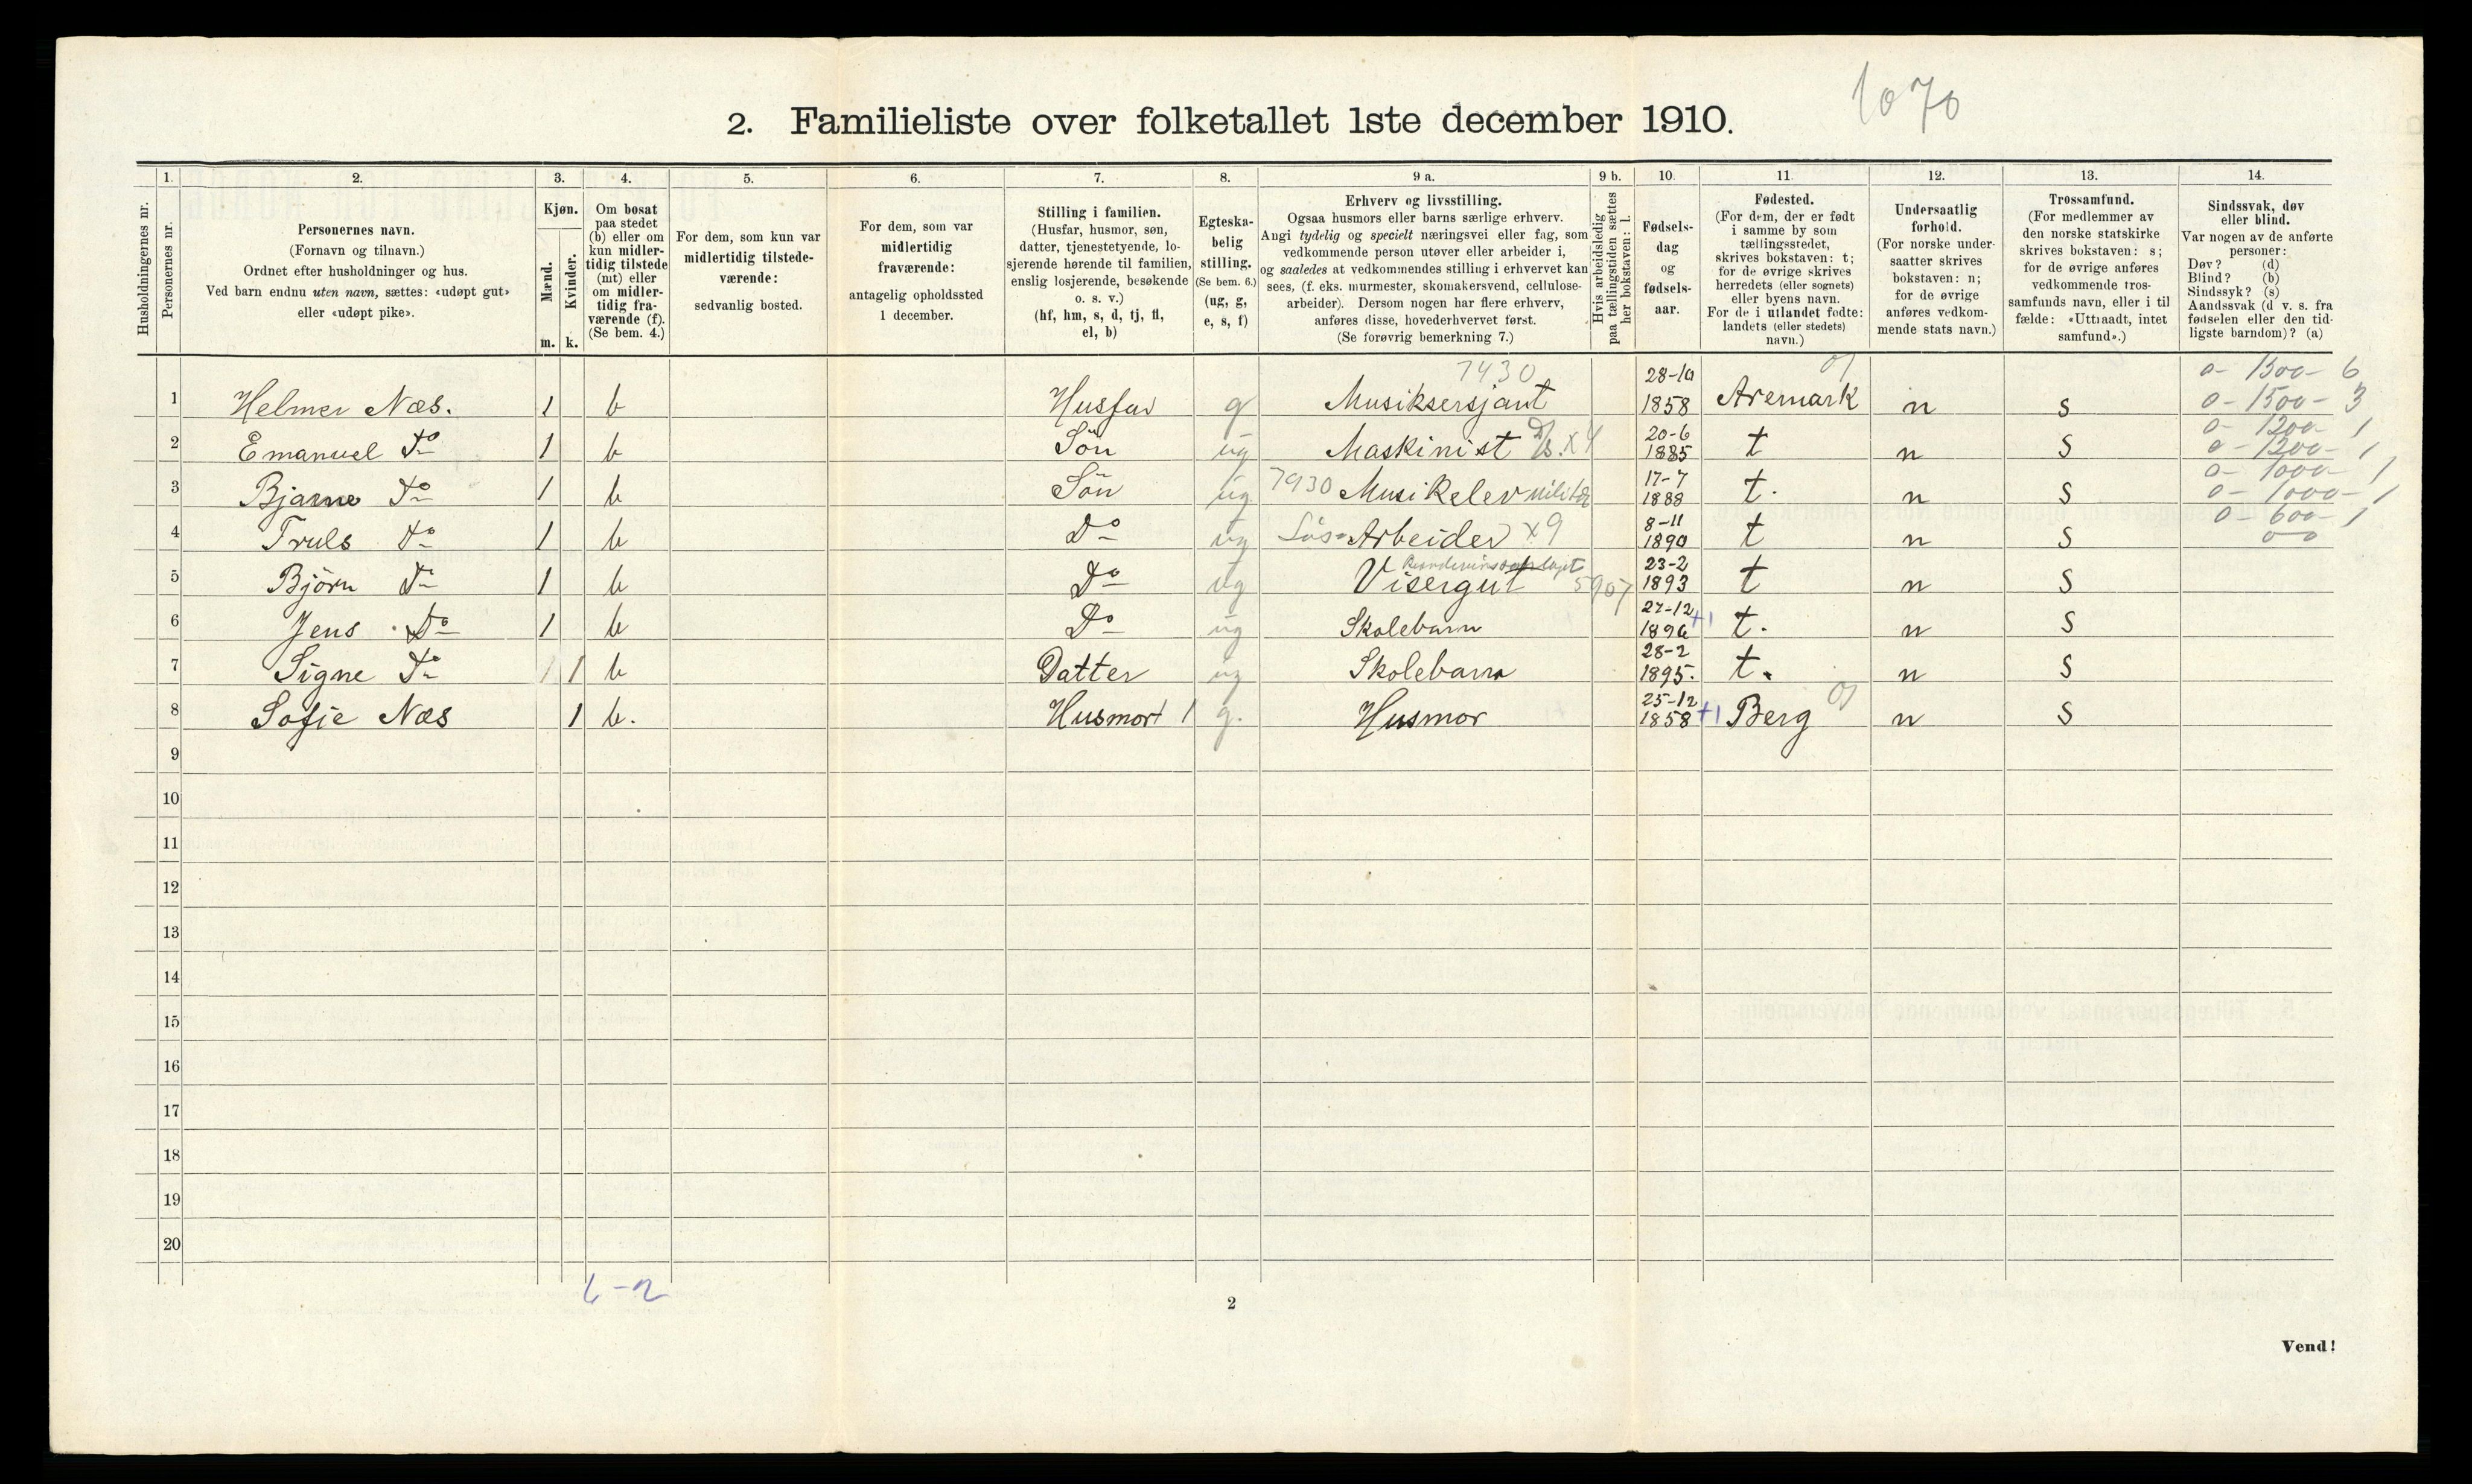 1070
2. Familieliste over folketallet 1ste december 1910.
Husholdningernes nr.
1. Personernes nr.
2. Personernes navn.
(Fornavn og tilnavn.)
Ordnet efter husholdninger og hus.
Ved barn endnu uten navn, sættes: «udøpt gut»
eller «udøpt pike».
3. Kjøn.
Mænd. m.
Kvinder. k.
4. Om bosat
paa stedet
(b) eller om
kun midler-
tidig tilstede
(mt) eller
om midler-
tidig fra-
værende (f).
(Se bem. 4.)
5. For dem, som kun var
midlertidig tilstede-
værende:
sedvanlig bosted.
6. For dem, som var
midlertidig
fraværende:
antagelig opholdssted
1 december.
7. Stilling i familien.
(Husfar, husmor, søn,
datter, tjenestetyende, lo-
sjerende hørende til familien,
enslig losjerende, besøkende
o. s. v.)
(hf, hm, s, d, tj, fl,
el, b)
8. Egteska-
belig
stilling.
(Se bem. 6.)
(ug, g,
e, s, f)
9 a. Erhverv og livsstilling.
Ogsaa husmors eller barns særlige erhverv.
Angi tydelig og specielt næringsvei eller fag, som
vedkommende person utøver eller arbeider i,
og saaledes at vedkommendes stilling i erhvervet kan
sees, (f. eks. murmester, skomakersvend, cellulose-
arbeider). Dersom nogen har flere erhverv,
anføres disse, hovederhvervet først.
(Se forøvrig bemerkning 7.)
9 b. Hvis arbeidsledig
paa tællingstiden sættes
her bokstaven: l.
10. Fødsels-
dag
og
fødsels-
aar.
11. Fødested.
(For dem, der er født
i samme by som
tællingsstedet,
skrives bokstaven: t;
for de øvrige skrives
herredets (eller sognets)
eller byens navn.
For de i utlandet fødte:
landets (eller stedets)
navn.)
12. Undersaatlig
forhold.
(For norske under-
saatter skrives
bokstaven: n;
for de øvrige
anføres vedkom-
mende stats navn.)
13. Trossamfund.
(For medlemmer av
den norske statskirke
skrives bokstaven: s;
for de øvrige anføres
vedkommende tros-
samfunds navn, eller i til
fælde: «Uttraadt, intet
samfund».)
14. Sindssvak, døv
eller blind.
Var nogen av de anførte
personer:
Døv? (d)
Blind? (b)
Sindssyk? (s)
Aandssvak (d v. s. fra
fødselen eller den tid-
ligste barndom)? (a)
1 Helmer Næs. 1 b Husfar g 7430 Musiksersjant 28-10 1858 Aremark n s
2 Emanuel Do 1 b Sön ug Maskinist X4 20-6 1885 t n s
3 Bjarne Do 1 b Sön ug 7930 Musikelev militær 17-7 1888 t. n s
4 Truls Do 1 b Do ug Løs- Arbeider x9 8-11 1890 t n s
5 Björn Do 1 b Do ug Visergut 5907 23-2 1893 t n s
6 Jens Do 1 b Do ug Skolebarn 27-12 1896 +1 t. n s
7 Signe Do 1 1 b Datter ug Skolebarn 28-2 1895. t. n s
8 Sofie Næs 1 b. Husmor 1 g. Husmor 25-12 1858 +1 Berg n s
0- 1500- 6
0- 1500- 3
0- 1200- 1
0- 1200- 1
0- 1000- 1
0- 1000- 1
0- 600- 1
9
10
11
12
13
14
15
16
17
18
19
20
6-2
2
Vend!